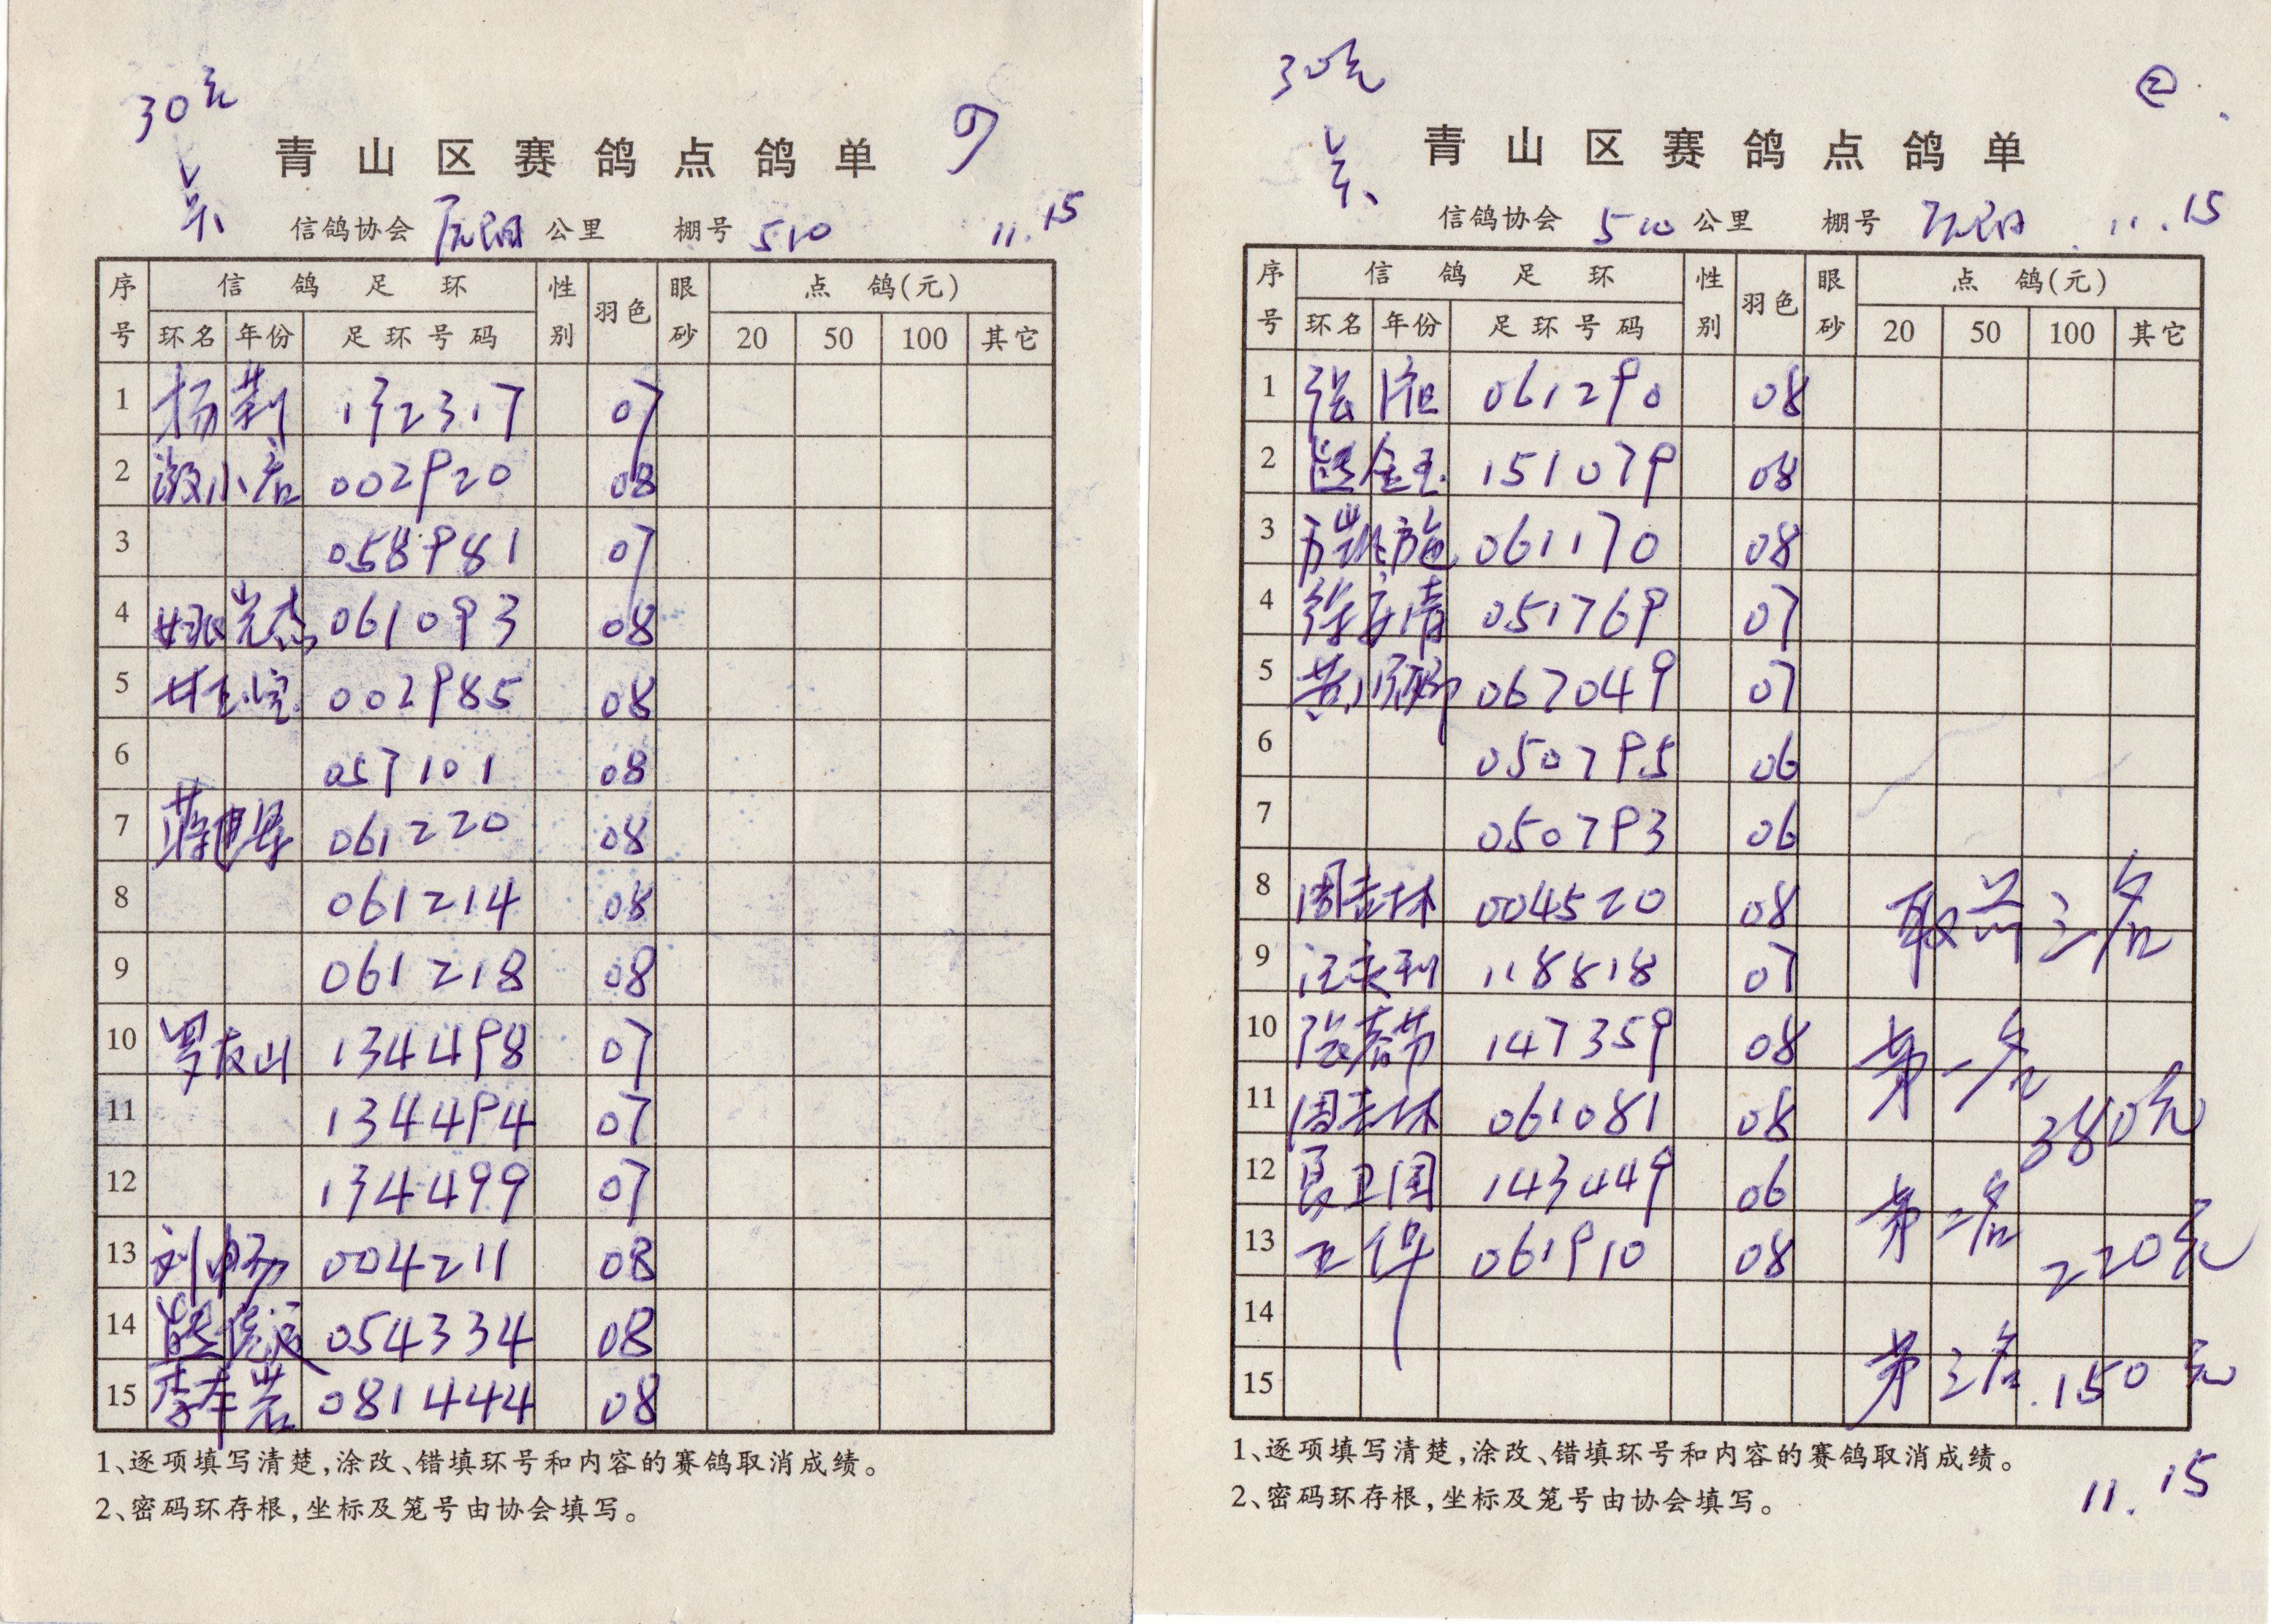 30元
青山区赛鸽点鸽单
信鸽协会 公里 棚号 510 11.15
序号 信鸽足环 性别 羽色 眼砂 点鸽(元)
环名 年份 足环号码 20 50 100 其它
1 杨莉 132317 07
2 小 002920 08
3 058981 07
4 姚光杰 061093 08
5 002985 08
6 057101 08
7 蒋 061220 08
8 061214 08
9 061218 08
10 罗友山 134498 07
11 134494 07
12 134499 07
13 刘畅 004211 08
14 熊 054334 08
15 李 岩 081444 08
1、逐项填写清楚,涂改、错填环号和内容的赛鸽取消成绩。
2、密码环存根,坐标及笼号由协会填写。
30元 ②
青山区赛鸽点鸽单
信鸽协会 510 公里 棚号 11.15
序号 信鸽足环 性别 羽色 眼砂 点鸽(元)
环名 年份 足环号码 20 50 100 其它
1 张 061290 08
2 熊金玉 151079 08
3 061170 08
4 徐 清 051769 07
5 黄 067049 07
6 050795 06
7 050793 06
8 周吉林 004520 08
取前三名
9 江 利 118818 07
10 张春节 147359 08
第一名
11 周吉林 061081 08
380元
12 卫国 143449 06
第二名
13 061910 08
220元
14
第三名 150元
15
1、逐项填写清楚,涂改、错填环号和内容的赛鸽取消成绩。
2、密码环存根,坐标及笼号由协会填写。
11.15